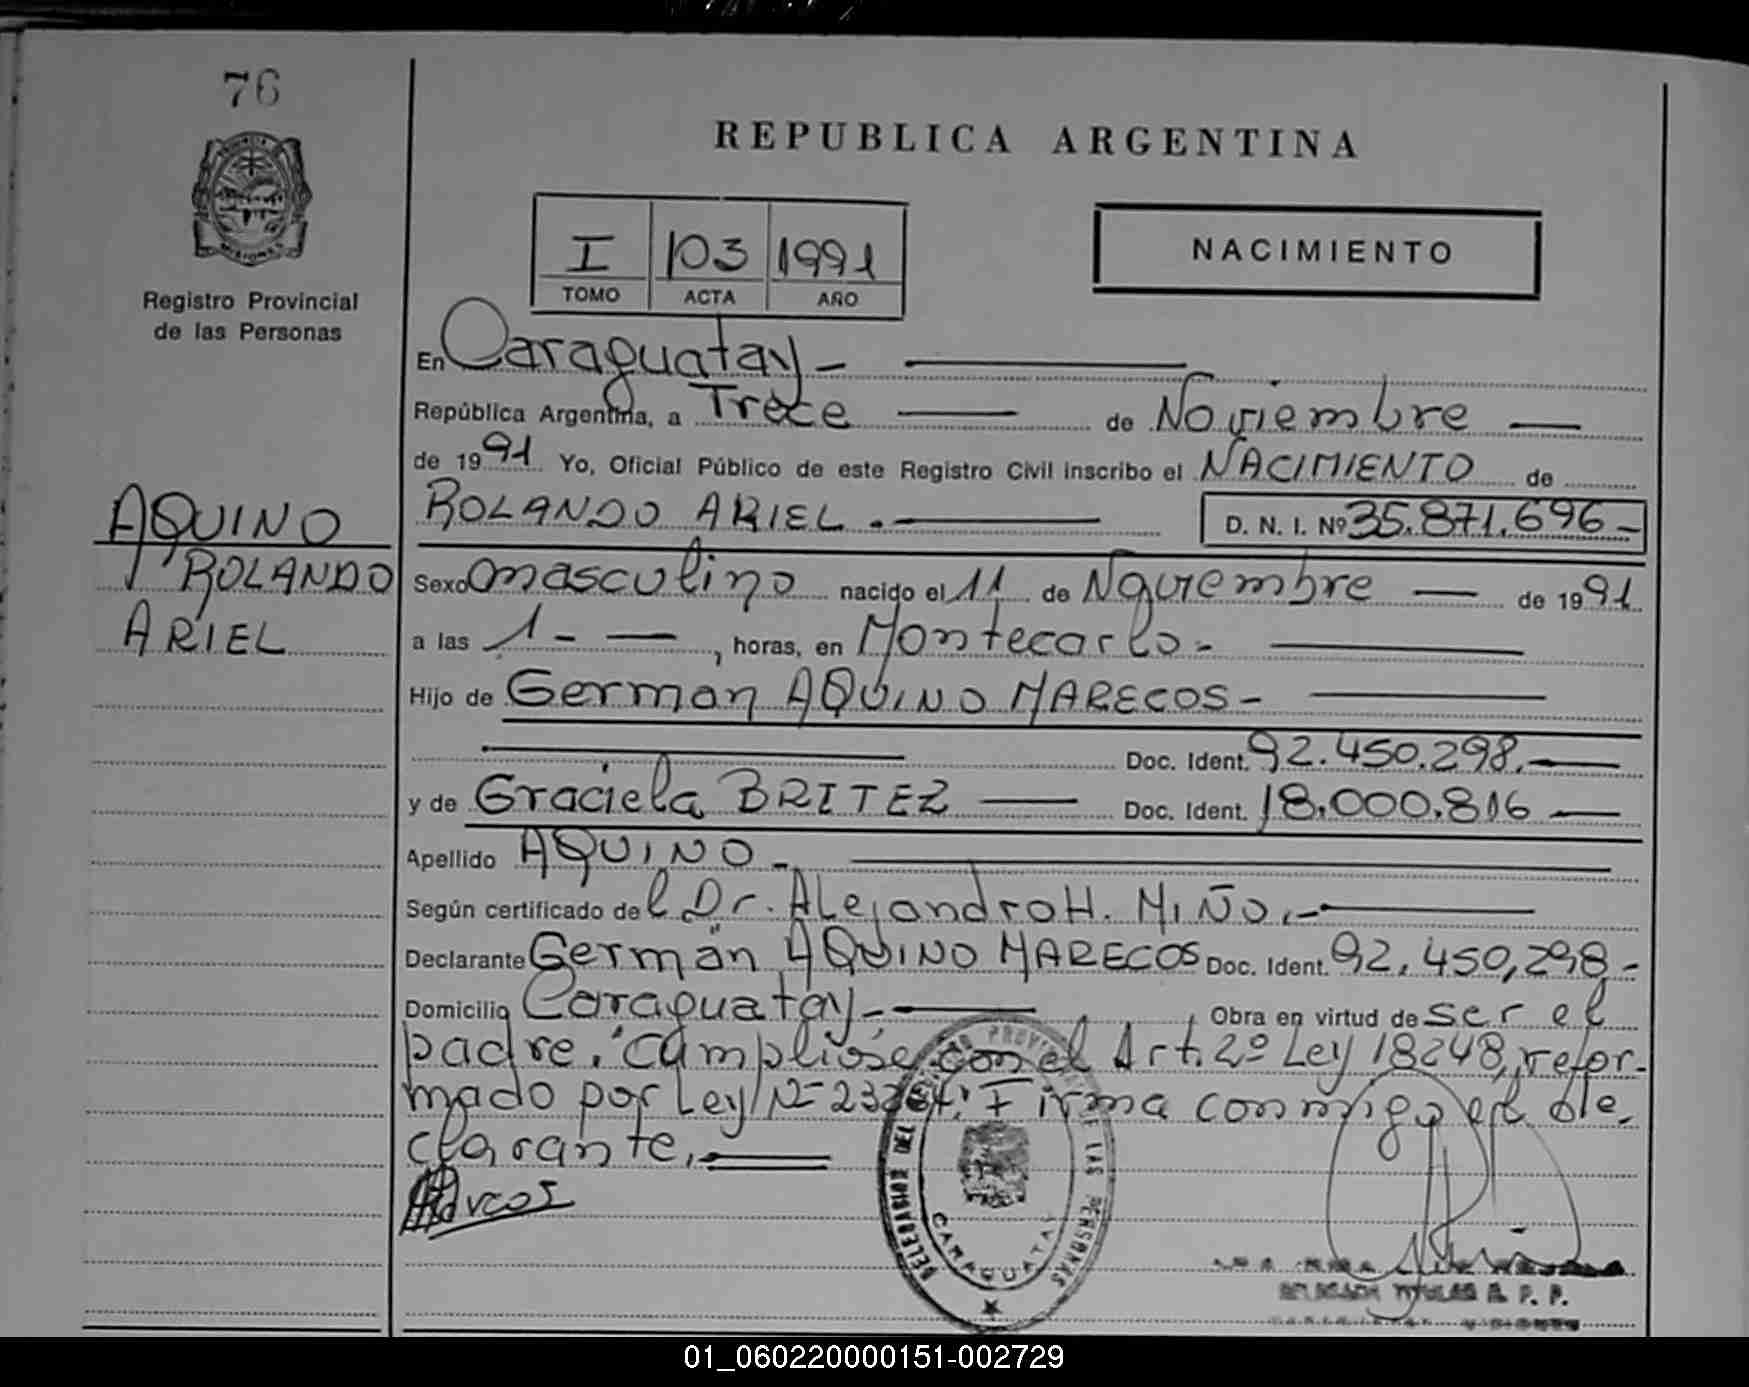 76
REPUBLICA ARGENTINA
MISIONES
Registro Provincial
de las Personas
I 103 1991
TOMO ACTA AÑO
NACIMIENTO
En Caraguatay -
República Argentina, a Trece de Noviembre
de 1991 Yo, Oficial Público de este Registro Civil inscribo el NACIMIENTO de
AQUINO
ROLANDO
ARIEL
ROLANDO ARIEL.- D. N. I. Nº 35.871.696-
Sexo masculino nacido el 11 de Noviembre de 1991
a las 1- , horas, en Montecarlo-
Hijo de Germán AQUINO MARECOS-
Doc. Ident. 92.450.298.
y de Graciela BRITEZ Doc. Ident. 18.000.816
Apellido AQUINO-
Según certificado del Dr. Alejandro H. MIÑO.-
Declarante Germán AQUINO MARECOS Doc. Ident. 92.450,298-
Domicilio Caraguatay- Obra en virtud de ser el
padre. "Cumplióse con el Art. 2º Ley 18248, refor-
mado por Ley Nº". Firma conmigo el de-
clarante.
DELEGACION DEL REGISTRO PROVINCIAL DE LAS PERSONAS
CARAGUATAY
DELEGADA TITULAR R. P. P.
01_060220000151-002729